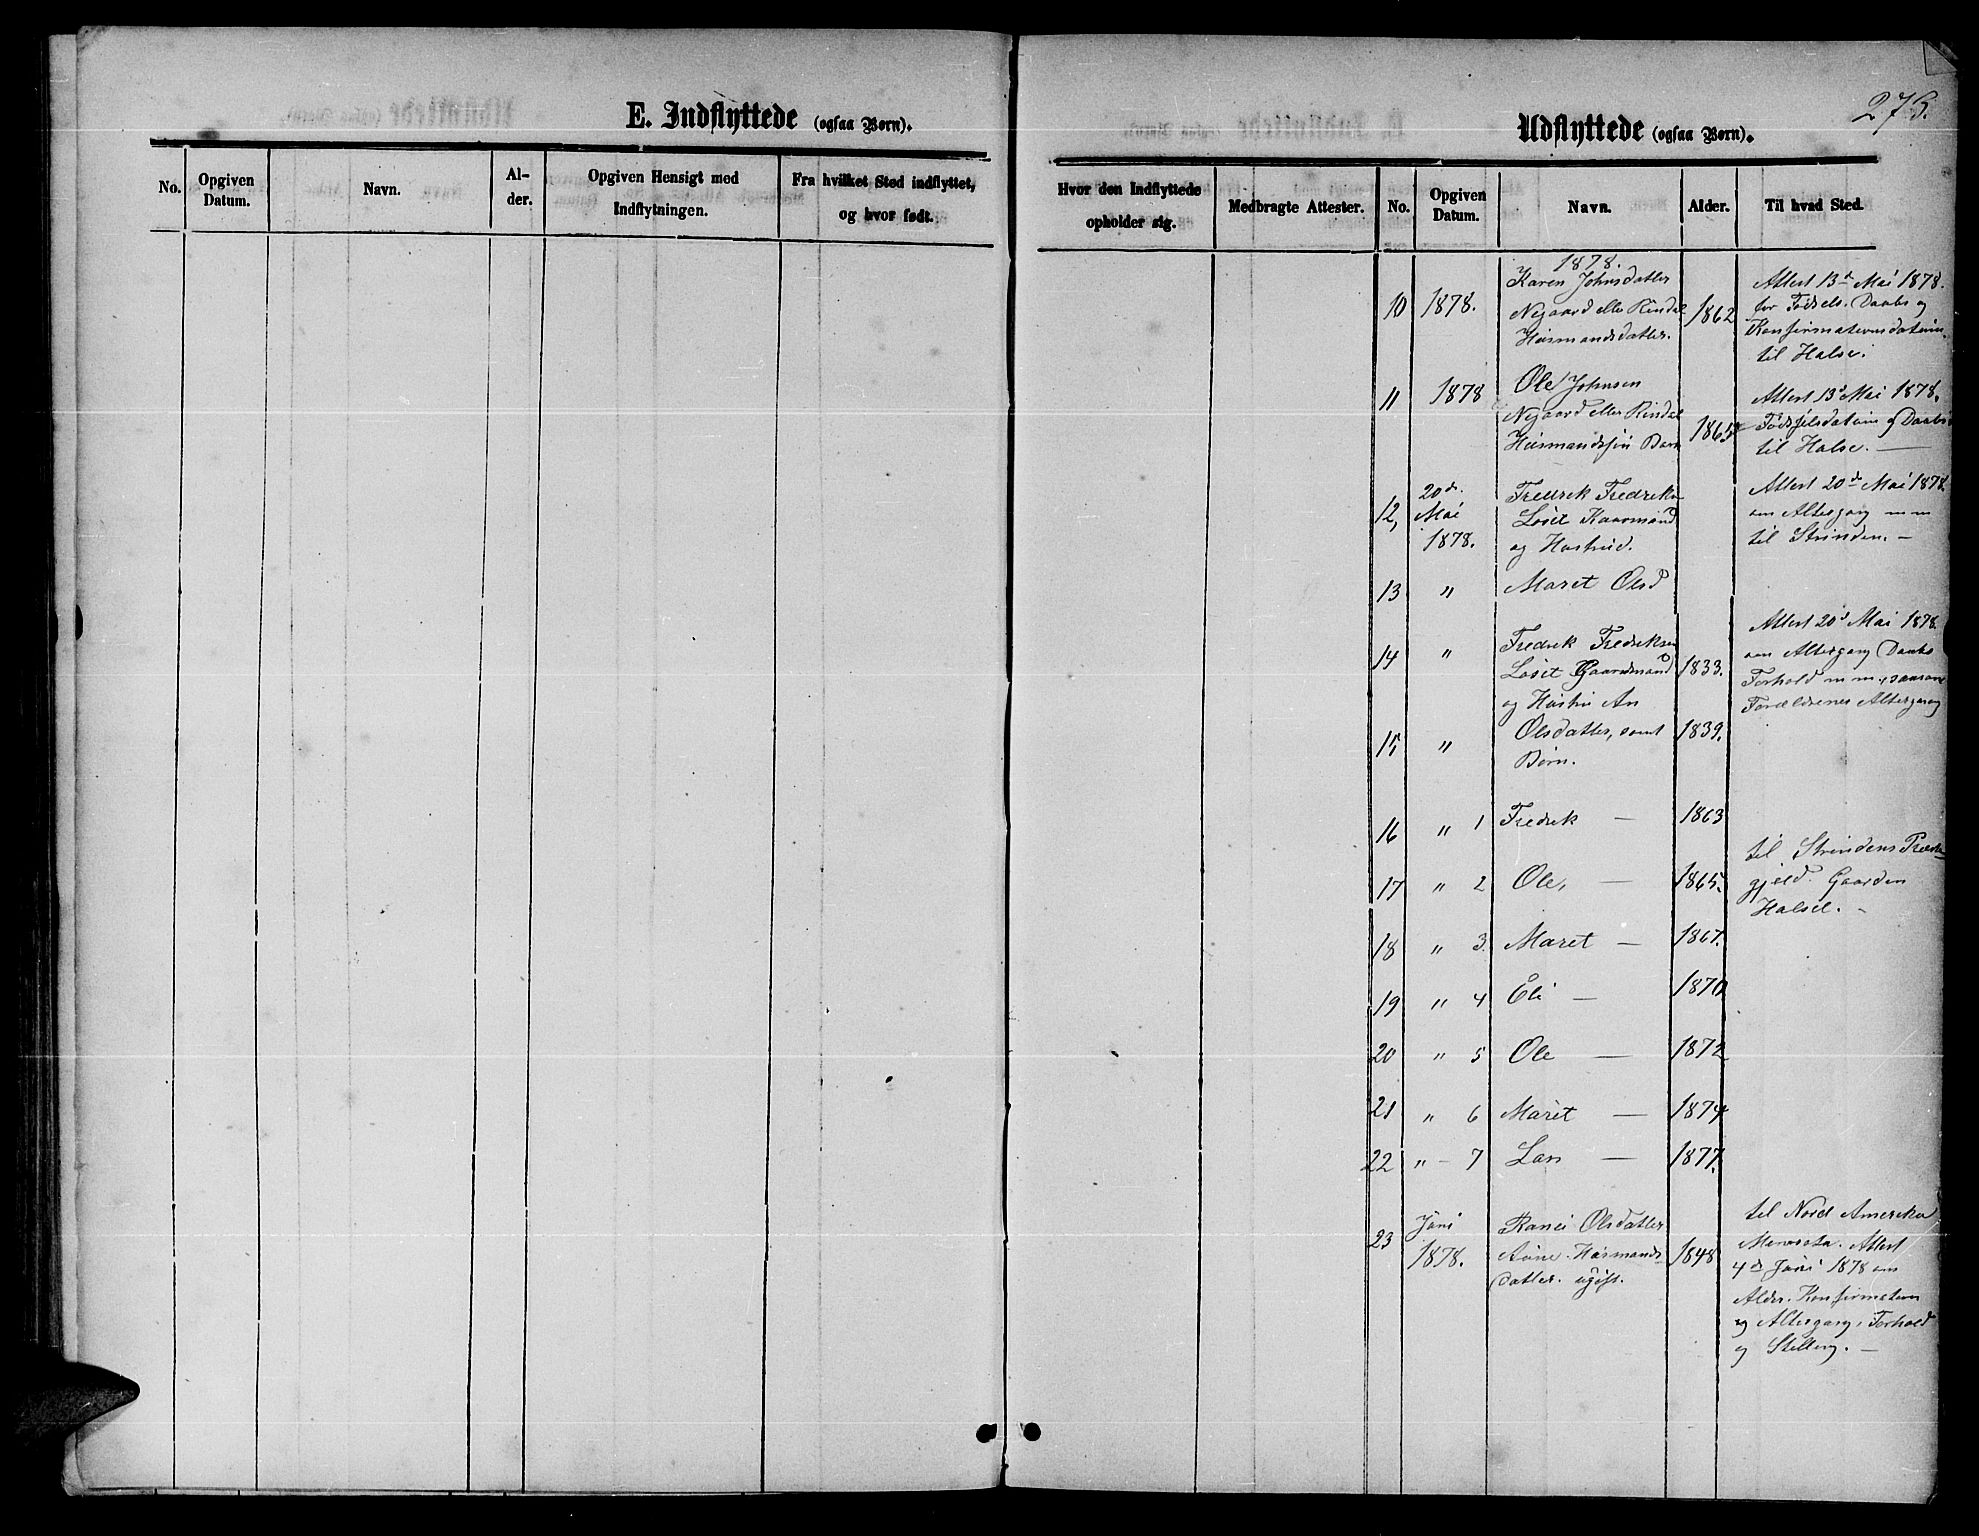 275.
E. Indflyttede (ogsaa Børn).
No.
Opgiven
Datum.
Navn.
Al-
der.
Opgiven Hensigt med
Indflytningen.
Fra hvilket Sted indflyttet,
og hvor født.
Udflyttede (ogsaa Børn).
Hvor den Indflyttede
opholder sig.
Medbragte Attester.
No.
Opgiven
Datum.
Navn.
Alder.
Til hvad Sted.
1878.
10 1878. Karen Johnsdatter
Nygaard eller Rindal
Husmandsdatter.
1862
Attest 13de Mai 1878.
for Fødsels. Daabs og
Konfirmationsdatum
til Halse.
11 1878 Ole Johnsen
Nygaard eller Rindal
Husmandssøn Barn
1865
Attest 13d Mai 1878.
Fødsselsdatum og Daabs
til Halse. —
12, 20de.
Mai
1878.
Fredrek Fredreks
Løset Kaarmand
og Hustrud.
Attest 20de Mai 1878.
om Altergang m m
til Strinden. —
13 " Maret Olsd
14 " Fredrek Fredreksen
Løset Gaardmand
og Hustru An
1833.
Attest 20d Mai 1878.
om Altergang Daabs
Forhold m m,
Forældrenes Altergang
15 " Olsdatter, samt
Børn.
1839.
16 " 1 Fredrek — 1863
17 " 2 Ole, — 1865.
til Strindens Præste
gjeld. Gaarden
Halset. —
18 " 3. Maret — 1867.
19 " 4 Eli — 1870
20 " 5 Ole — 1872
21 " 6 Maret — 1874
22 " — 7 Lars — 1877.
23 Juni
1878.
Ranei Olsdatter
Aune. Husmands-
datter. ugift.
1848
til Nord Amerika
Menesota. Attest
4de Juni 1878 om
Alder. Konfirmation
og Altergang, Forhold
og Stilling. —